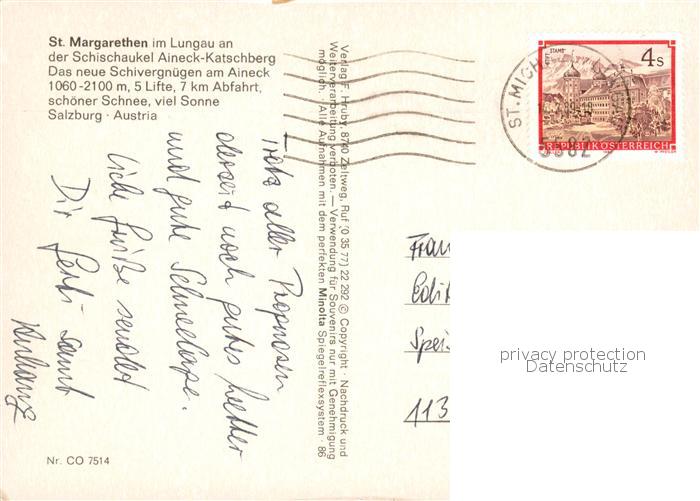 St. Margarethen im Lungau an
der Schischaukel Aineck-Katschberg
Das neue Schivergnügen am Aineck
1060-2100 m, 5 Lifte, 7 km Abfahrt,
schöner Schnee, viel Sonne
Salzburg · Austria
Trotz aller Prognosen
derzeit noch gutes Wetter
und gute Schneelage.
Liebe Grüße sendet
Dir samt
Nr. CO 7514
Verlag F. Hruby, 8740 Zeltweg, Ruf (0 35 77) 22 292 © Copyright · Nachdruck und
Weiterverarbeitung verboten. — Verwendung für Souvenirs nur mit Genehmigung
möglich. · Alle Aufnahmen mit dem perfekten Minolta Spiegelreflexsystem · 86
STIFT STAMS
4 S
REPUBLIK ÖSTERREICH
ST. MICH
5582
Frau
Edit
Spei
113
privacy protection
Datenschutz